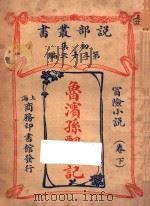 說部叢書
初集
冒險小說
(卷下)
魯濱孫飄流記
上海
商務印書館發行